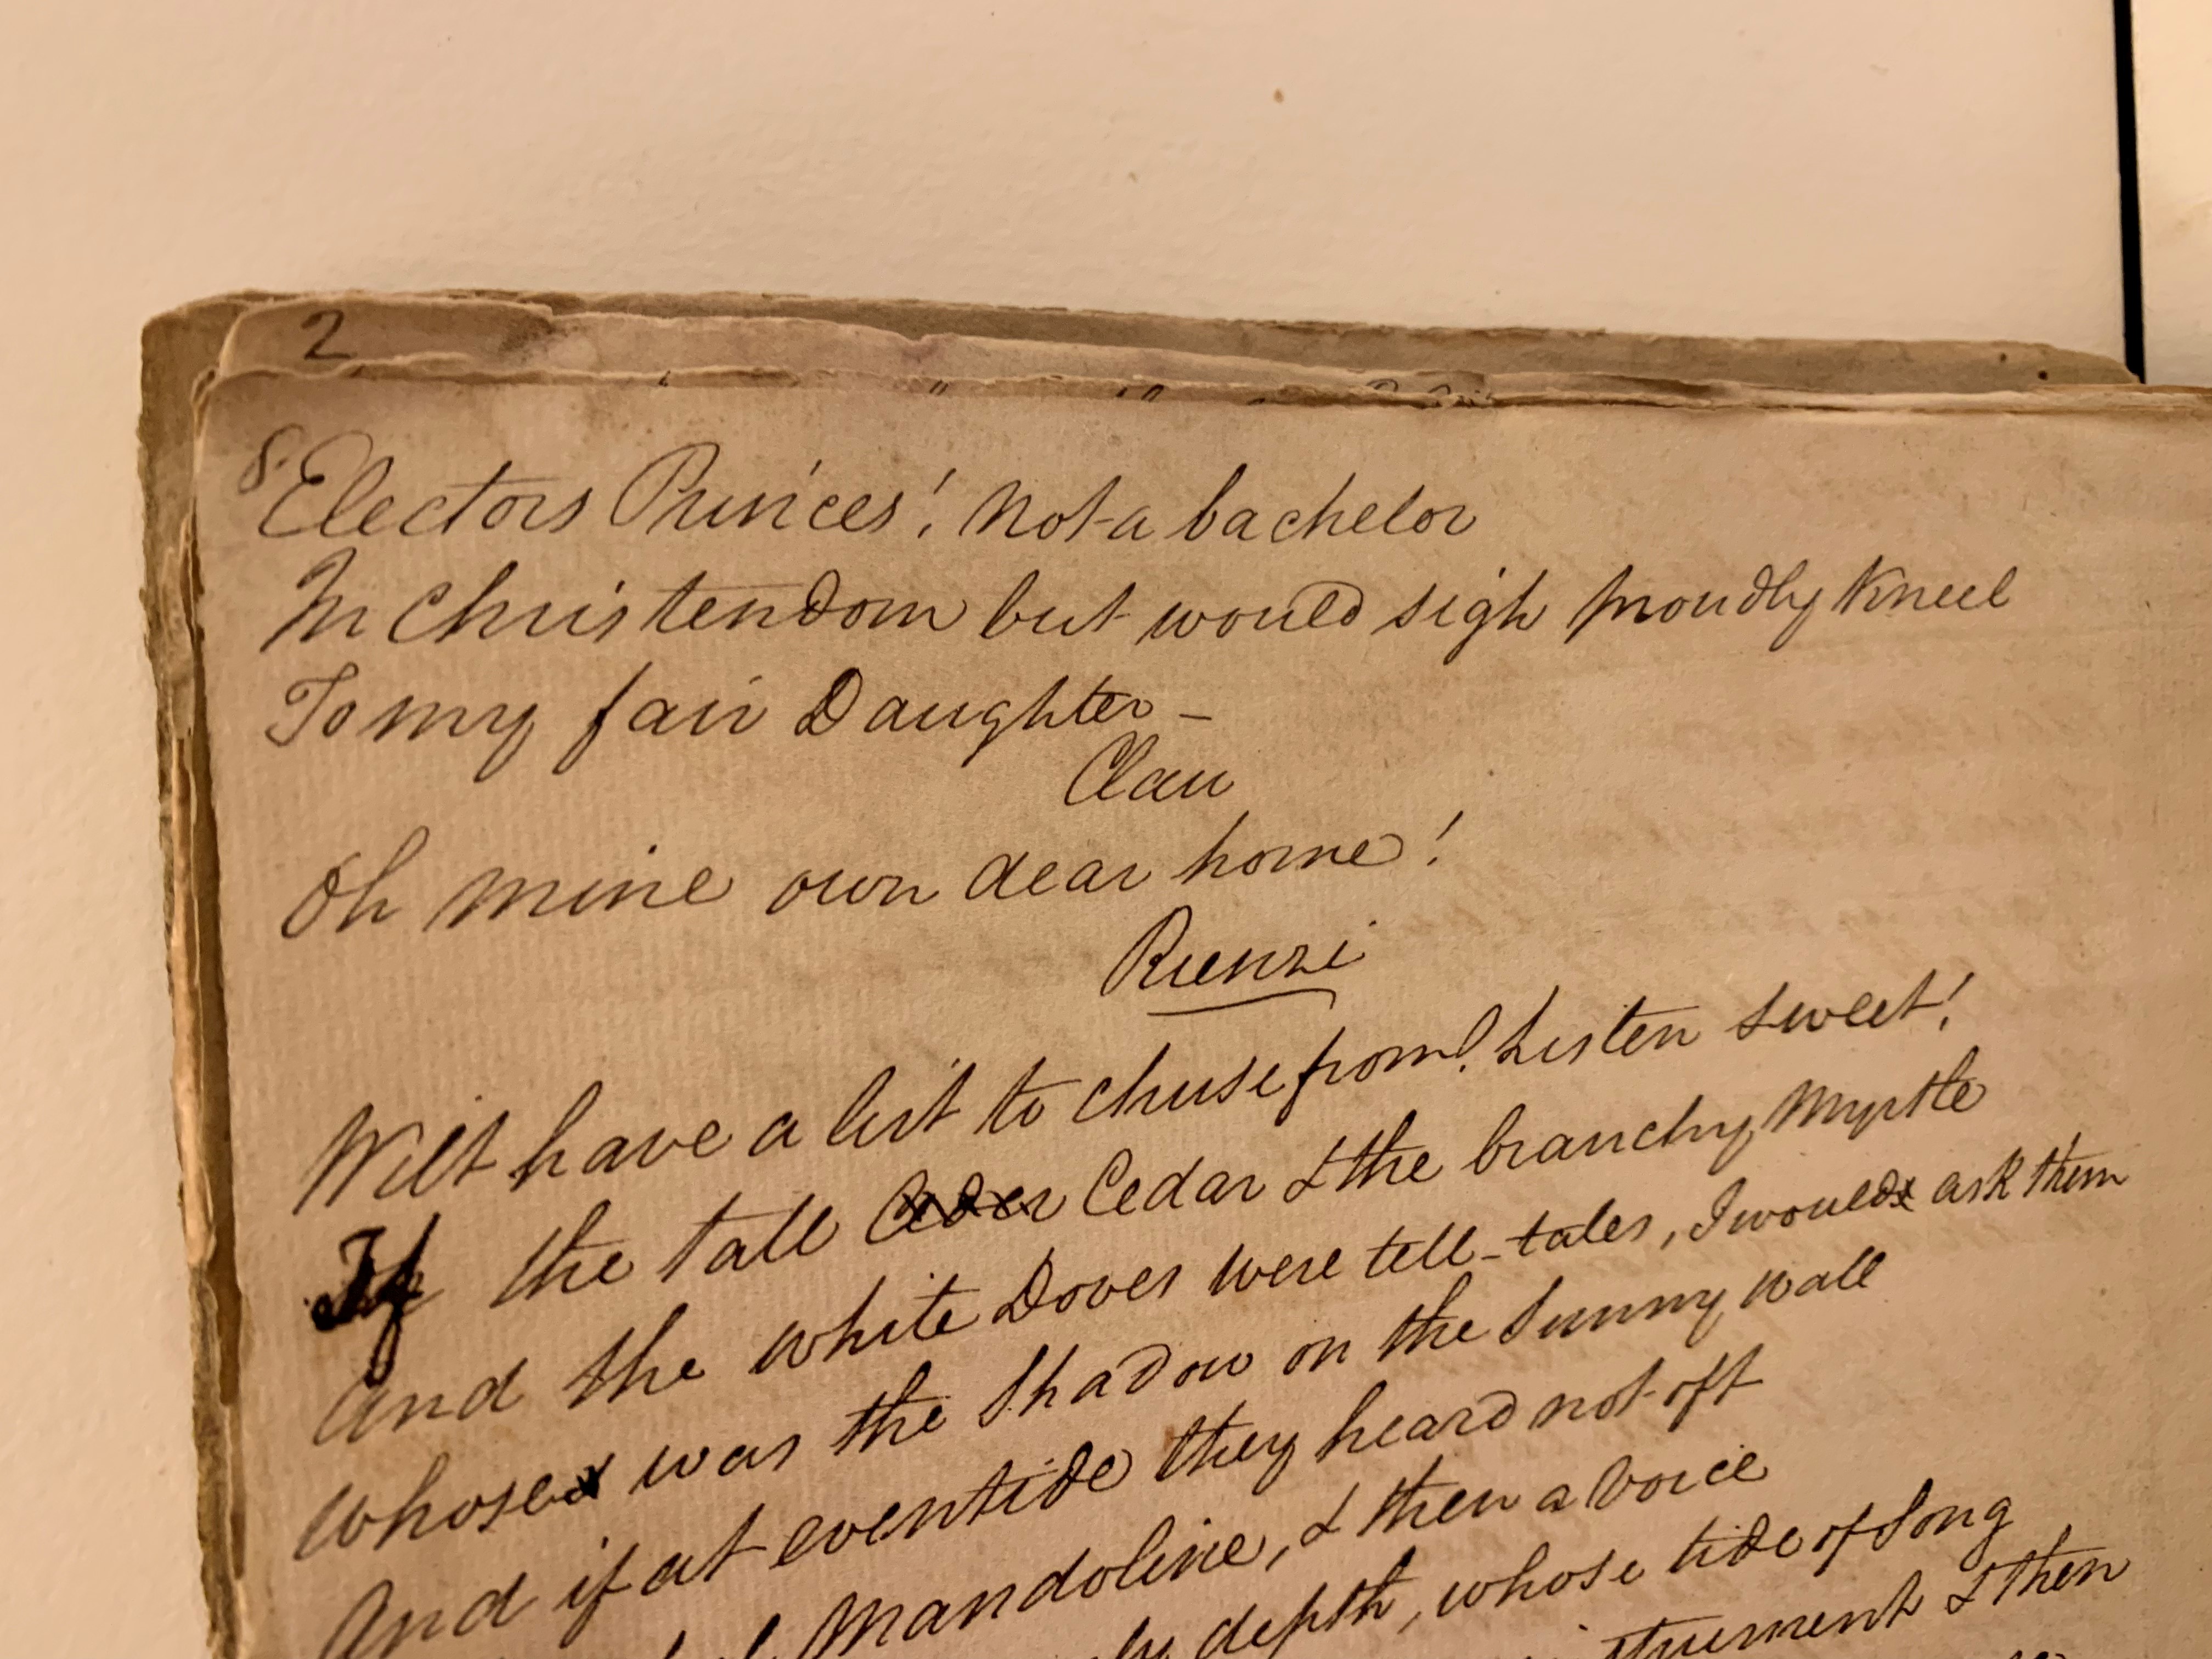 2
8.
Electors Princes'! Not a bachelor
In Christendom but would sigh proudly kneel
To my fair Daughter –
Clau
Oh mine own dear home!
Rienzi
Wilt have a list to chuse from! Listen sweet!
If the tall Ceder Cedar & the branchy Myrtle
And the white Doves were tell-tales, I would ask them
Whose was the Shadow on the Sunny wall
And if at eventide they heard not oft
Mandoline, & then a voice
depth, whose tide of Song
& then